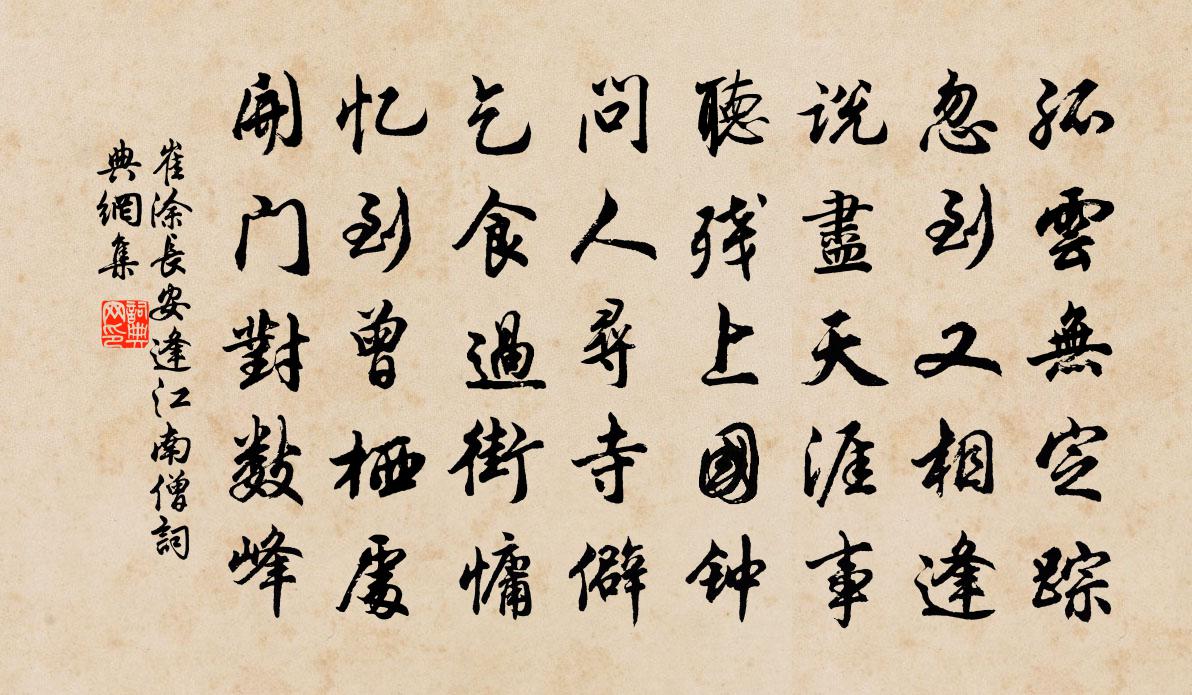 孤雲無定踪
忽到又相逢
説盡天涯事
聽残上國钟
問人尋寺僻
乞食過街慵
忆到曾栖處
開門對數峰
崔涂長安逢江南僧詞
典網集
詞典
网印